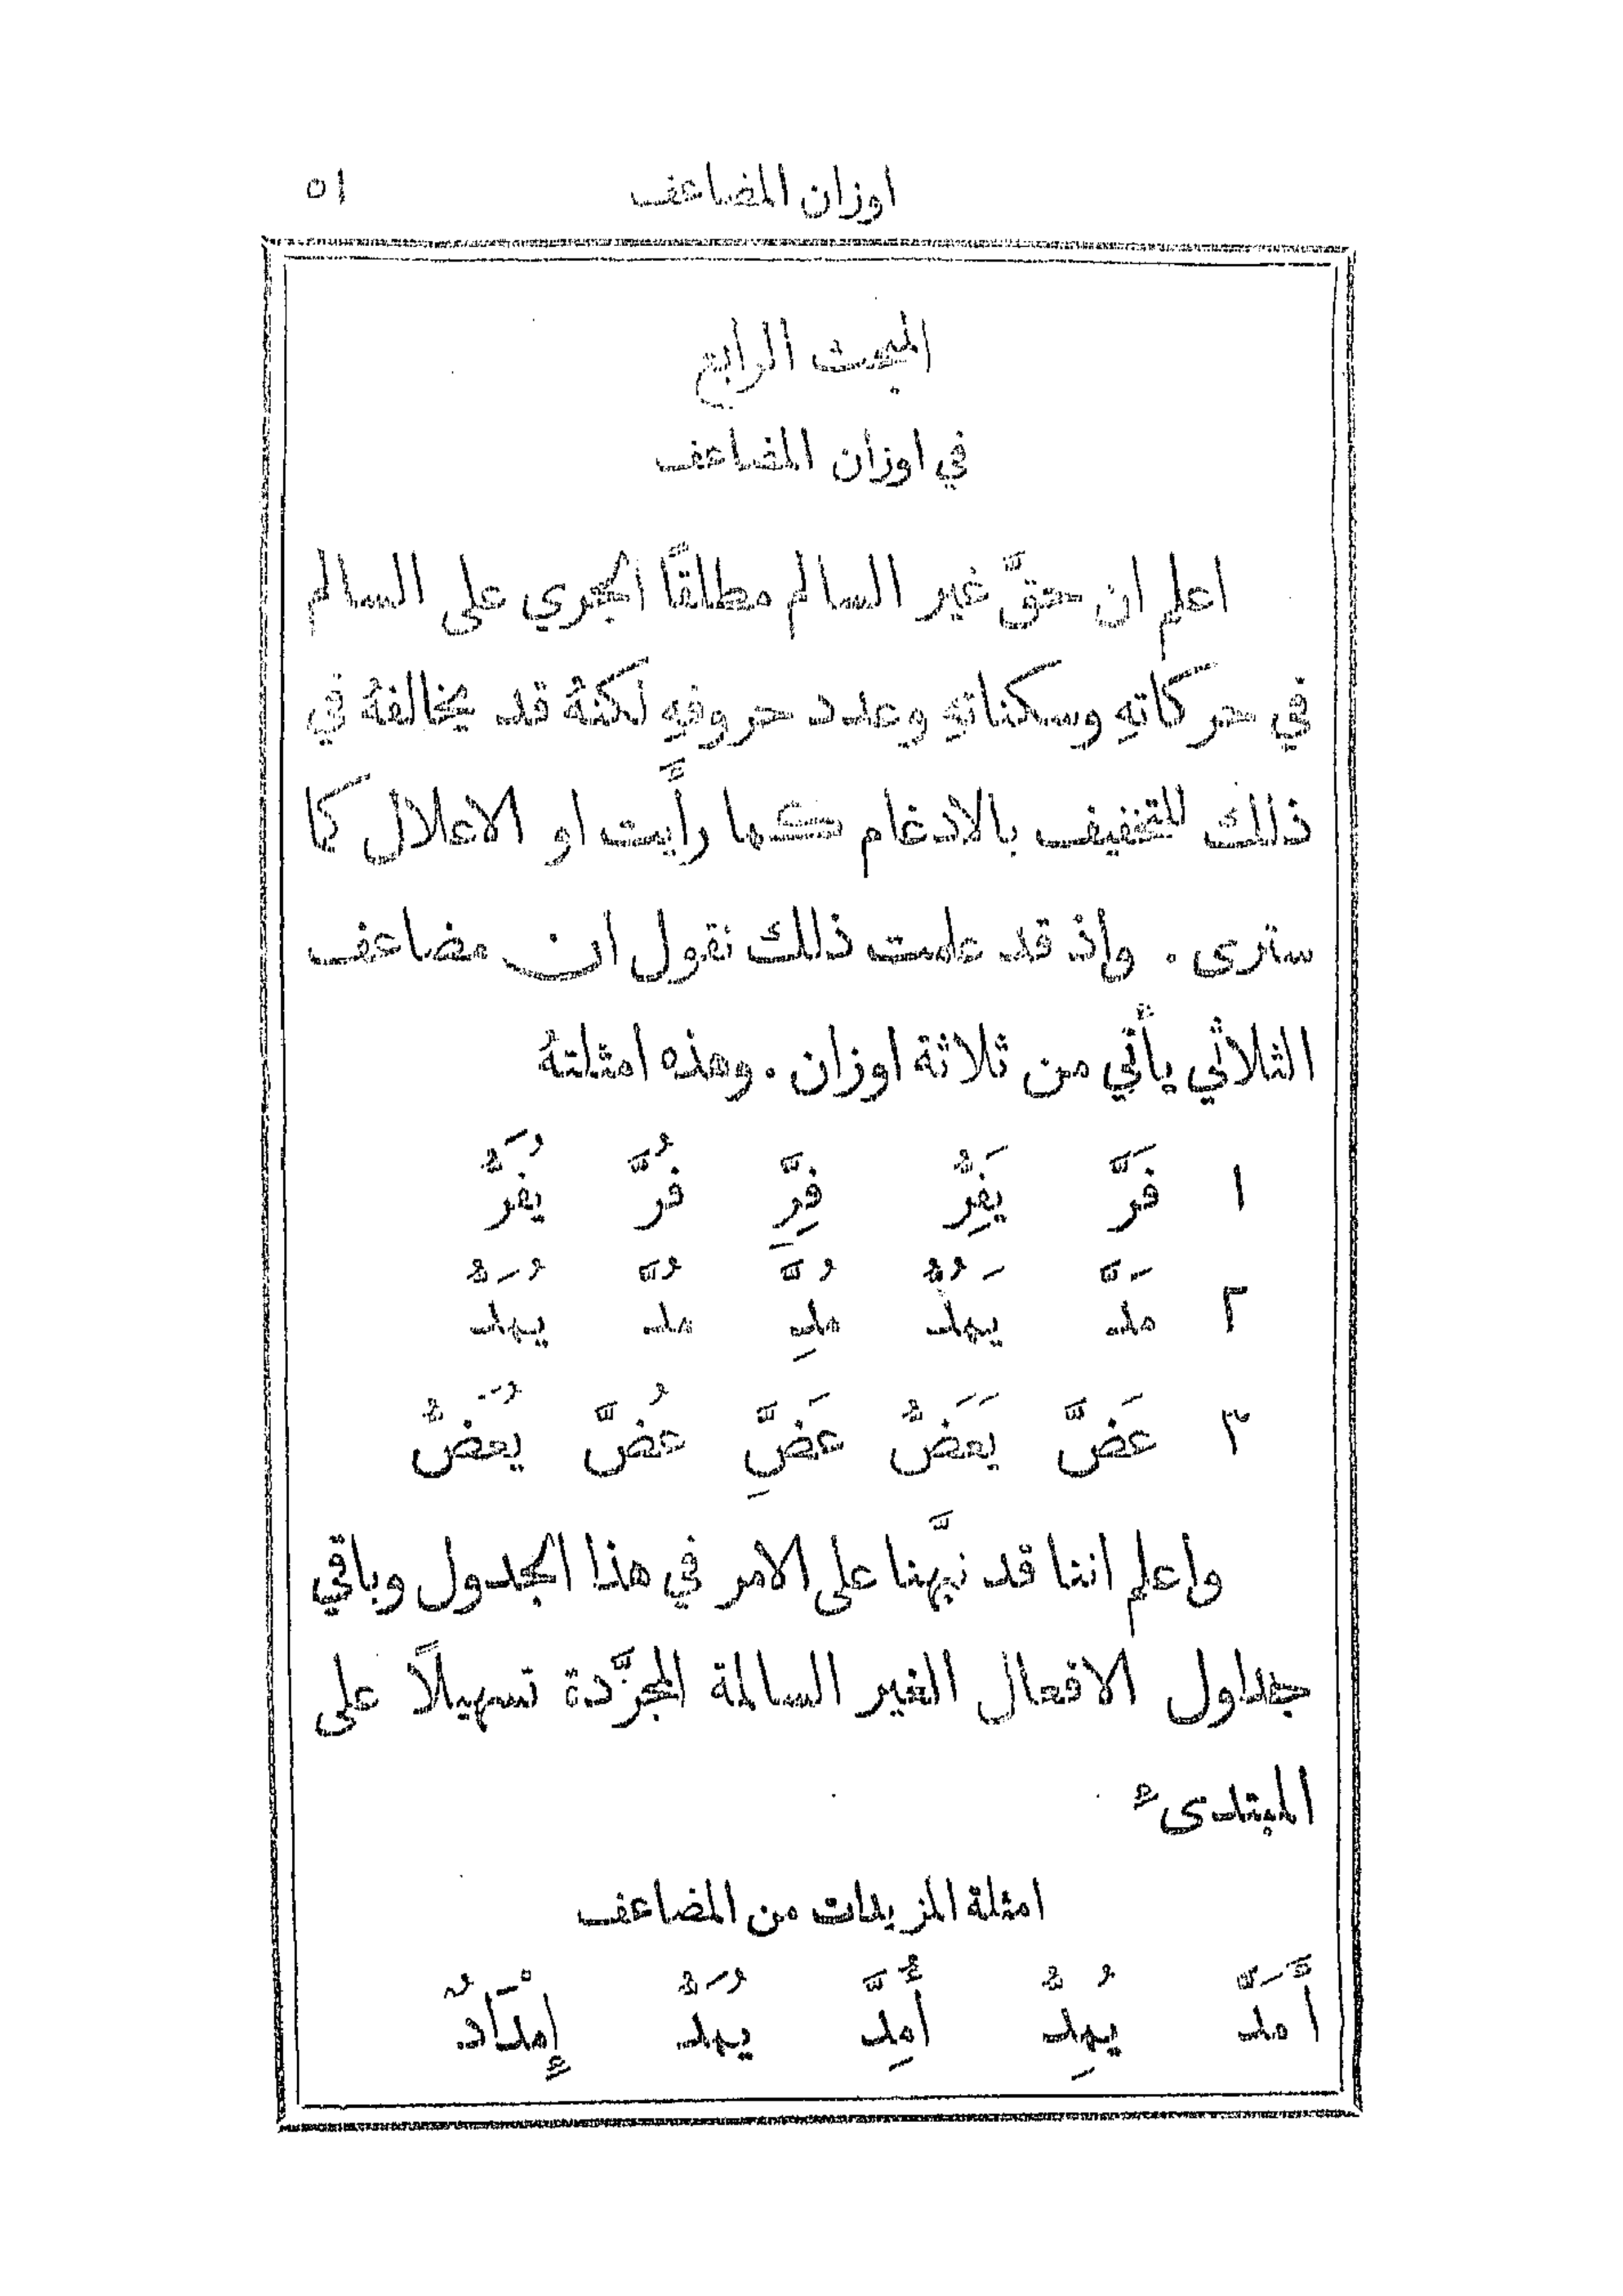 اوزان المضاعف ٥١
المبحث الرابع
في اوزان المضاعف
اعلم ان حقَّ غير السالم مطلقًا الجري على السالم
في حركاتهِ وسكناتهِ وعدد حروفهِ لكنهُ قد يخالفهُ في
ذلك للتخفيف بالادغام كما رأَيت او الاعلال كما
سترى . واذ قد علمت ذلك نقول ان مضاعف
الثلاثي يأتي من ثلاثة اوزان . وهذه امثلتهُ
١ فَرَّ يَفِرُّ فِرَِّ فُرَّ يُفَرُّ
٢ مَدَّ يَمُدُّ مُدَِّ مُدَّ يُمَدُّ
٣ عَضَّ يَعَضُّ عَضَِّ عُضَّ يُعَضُّ
واعلم اننا قد نبَّهنا على الامر في هذا الجدول وباقي
جداول الافعال الغير السالمة المجرَّدة تسهيلًا على
المبتدىء
امثلة المزيدات من المضاعف
أَمَدَّ يُمِدُّ أُمِدَّ يُمَدُّ إِمْدَادٌ